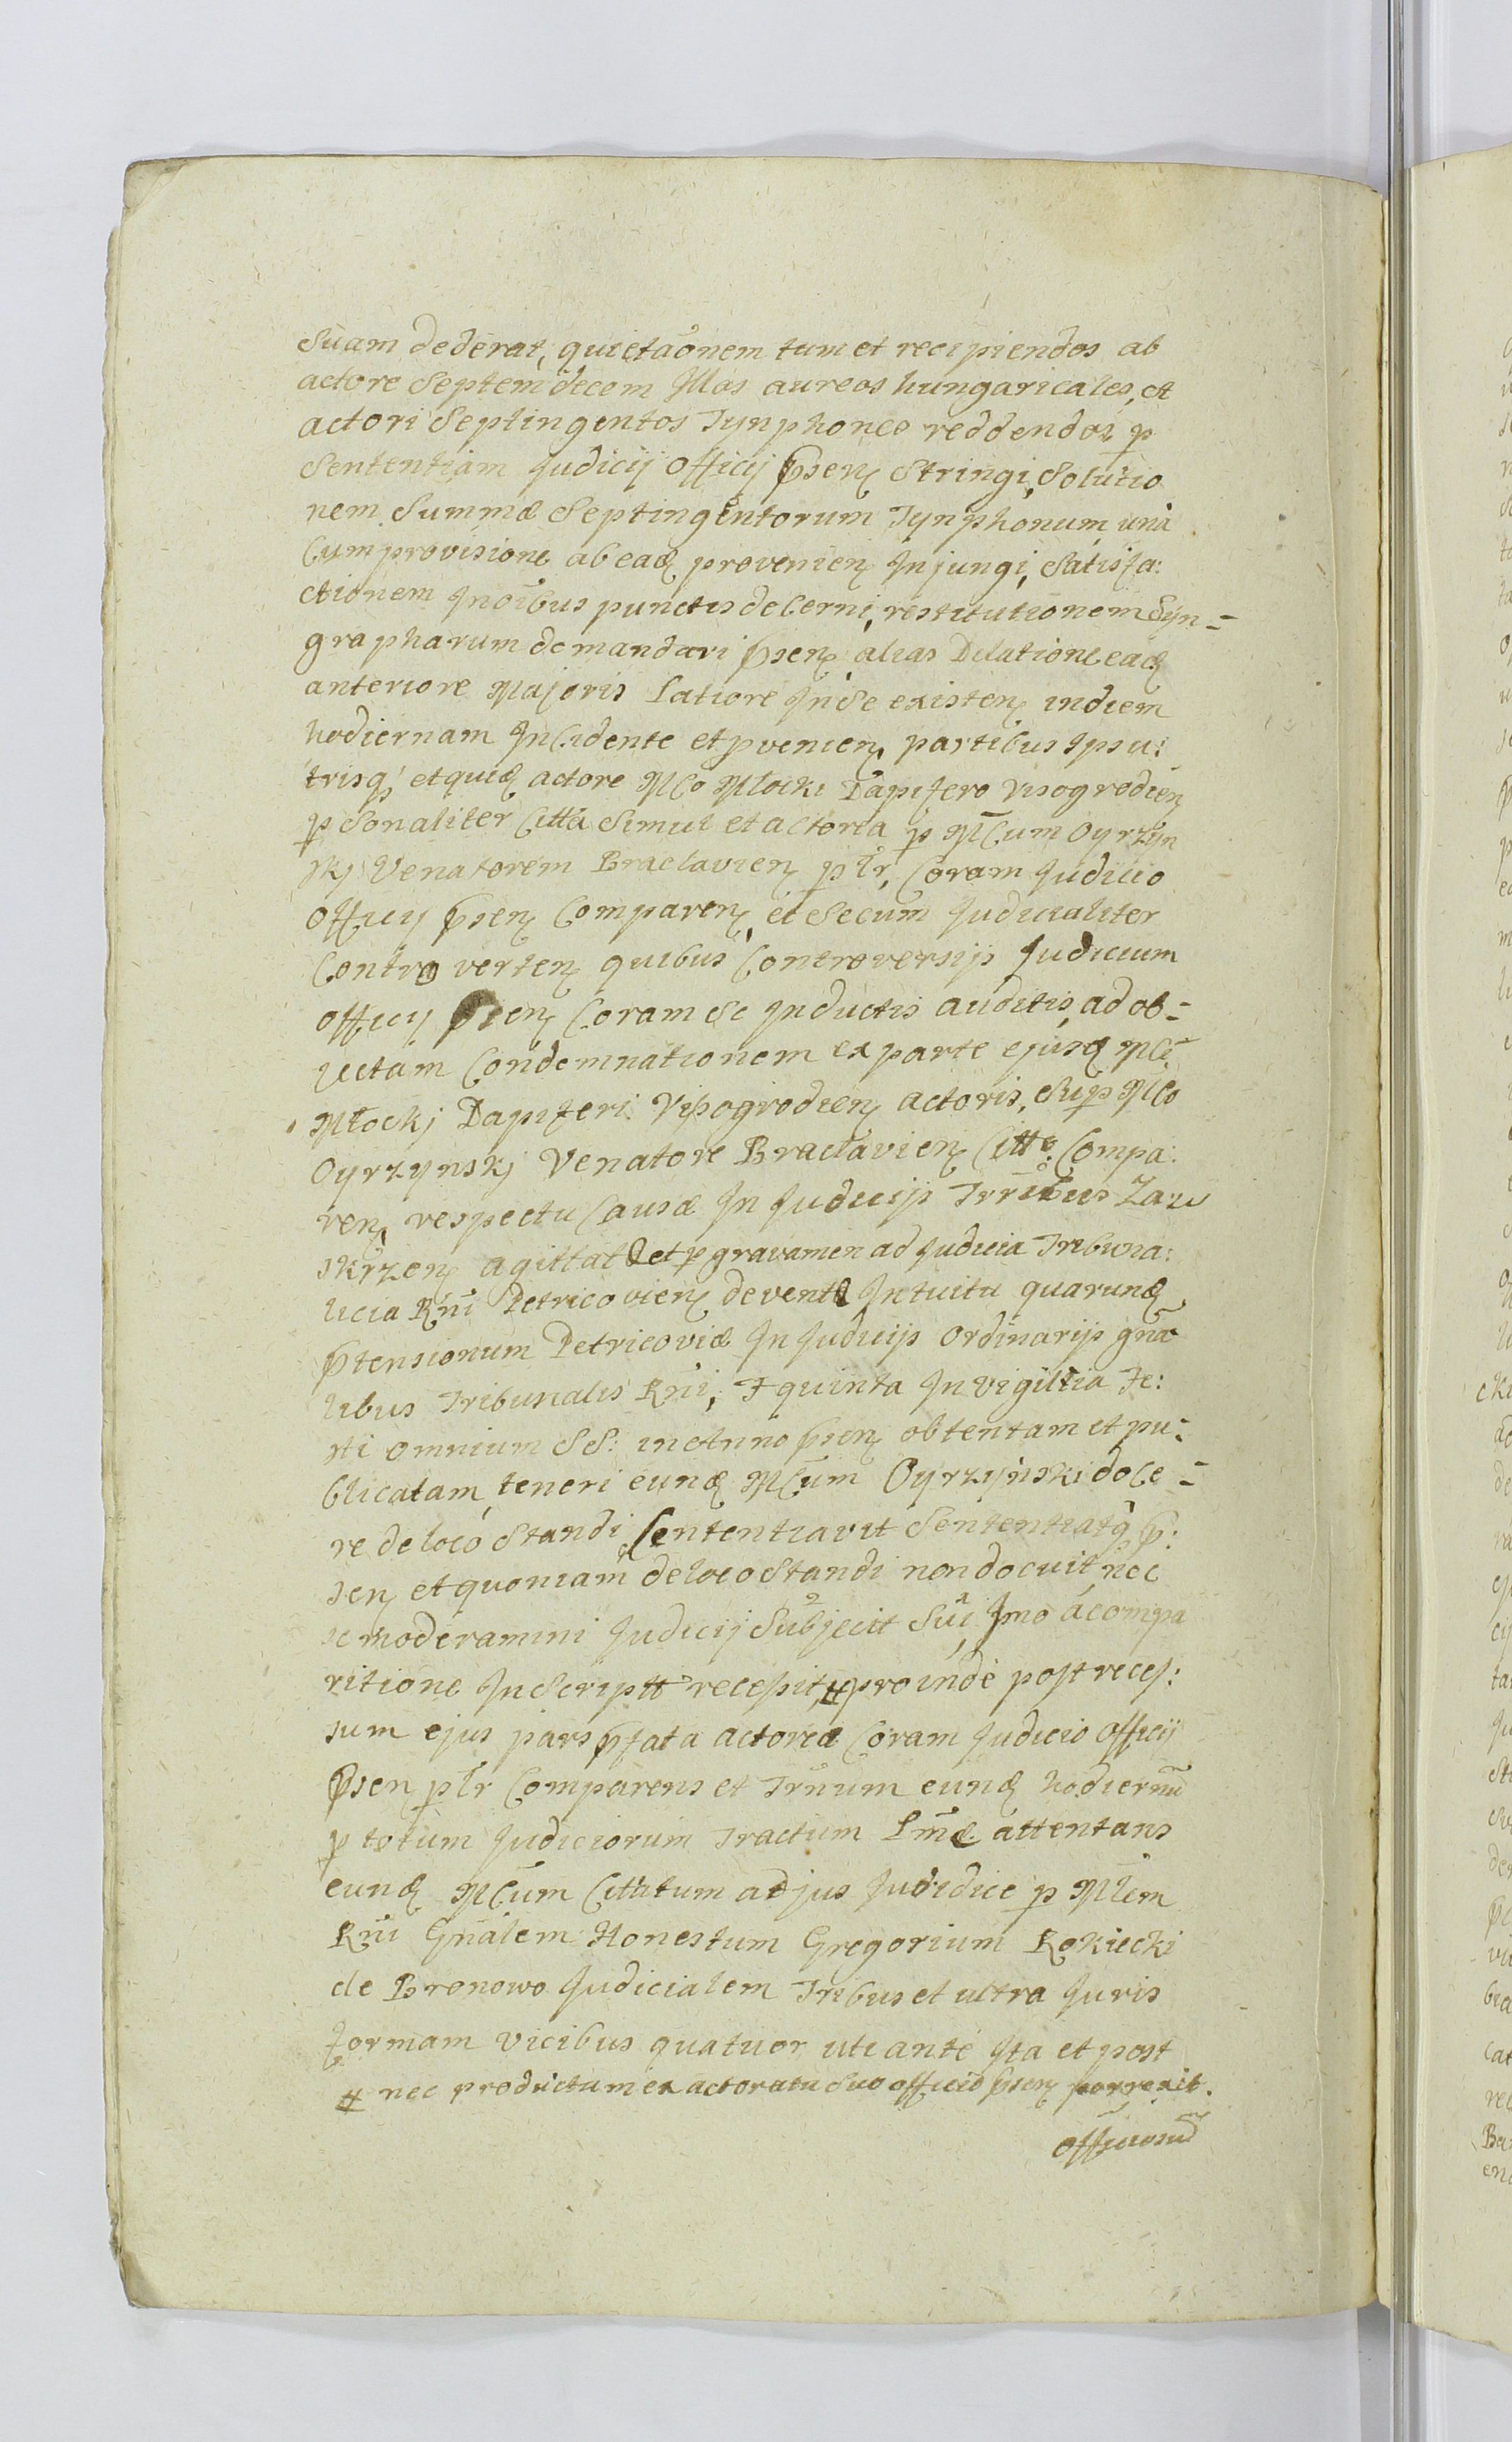 Suam dederat, quietaõnem tum et recipiendos ab
actore Septemdecem Illos aureos hungaricales, et
actori Septingentos Tynphones reddendos p
Sententiam Judicij Officij Psen Stringi, Solutio
nem Summæ Septingentorum Tynphonum, una
Cum provisione ab ead provenien Injungi, Satisfa:
ctionem In oibus punctis deCerni, restitutionem Syn=
grapharum demandari Psen alias Dilatione ead
anteriore Majoris Latiore In Se existen in diem
hodiernam InCidente et pvenien, partibus Ipsu:
trisq, et quid actore MCo Młocki Dapifero Visogrodien
p Sonaliter Citta Simul et actorea p MCum Oyrzyn
skj Venatorem Braclavien plr, Coram Judicio
Officij Psen Comparen, et Secum Judicialiter
Contro verten quibus Controversijs Judicium
Officij Psen Coram Se Inductis auditis, ad ob=
lectam Condemnationem ex parte ejusd MCi
Młockj Dapiferi Vissogrodien actoris, Sup MCo
Oyrzynskj Venatore Braclavien Citto Compa:
ren, respectu Causæ In Judicijs Trribus Zaw
skrzen agittat et p gravamen ad Judicia Tribuna:
licia Rni Petricovien devent Intuitu quarund
Ptensionum Petricoviæ In Judicijs Ordinarijs gna
libus Tribunalis Rni, F quinta In vigilia Fe:
sti omnium SS: in Anno Psen obtentam et pu=
blicatam, teneri eund MCum Oyrzynski doce=
re de loco Standi Sententiavit Sententiatq P:
sen et quoniam de loco Standi non docuit, nec
se moderamini Judicij Subjecit Sui, Imo a compa
ritione In Script recessit, # proinde post reces:
sum ejus pars Pfata actorea Coram Judicio Officij
Psen plr Comparens et Trnum eund hodiernu
p totum Judiciorum Tractum Lme attentans
eund MCum Cittatum ad jus Juridice p Mlem
Rni Gnalem Honestum Gregorium Rokiecki
de Bronowo Judicialem Tribus et ultra Juris
formam vicibus quatuor uti ante Ita et post
# nec productum ex actoratu Suo officio Psen porrexit.
Officiosum